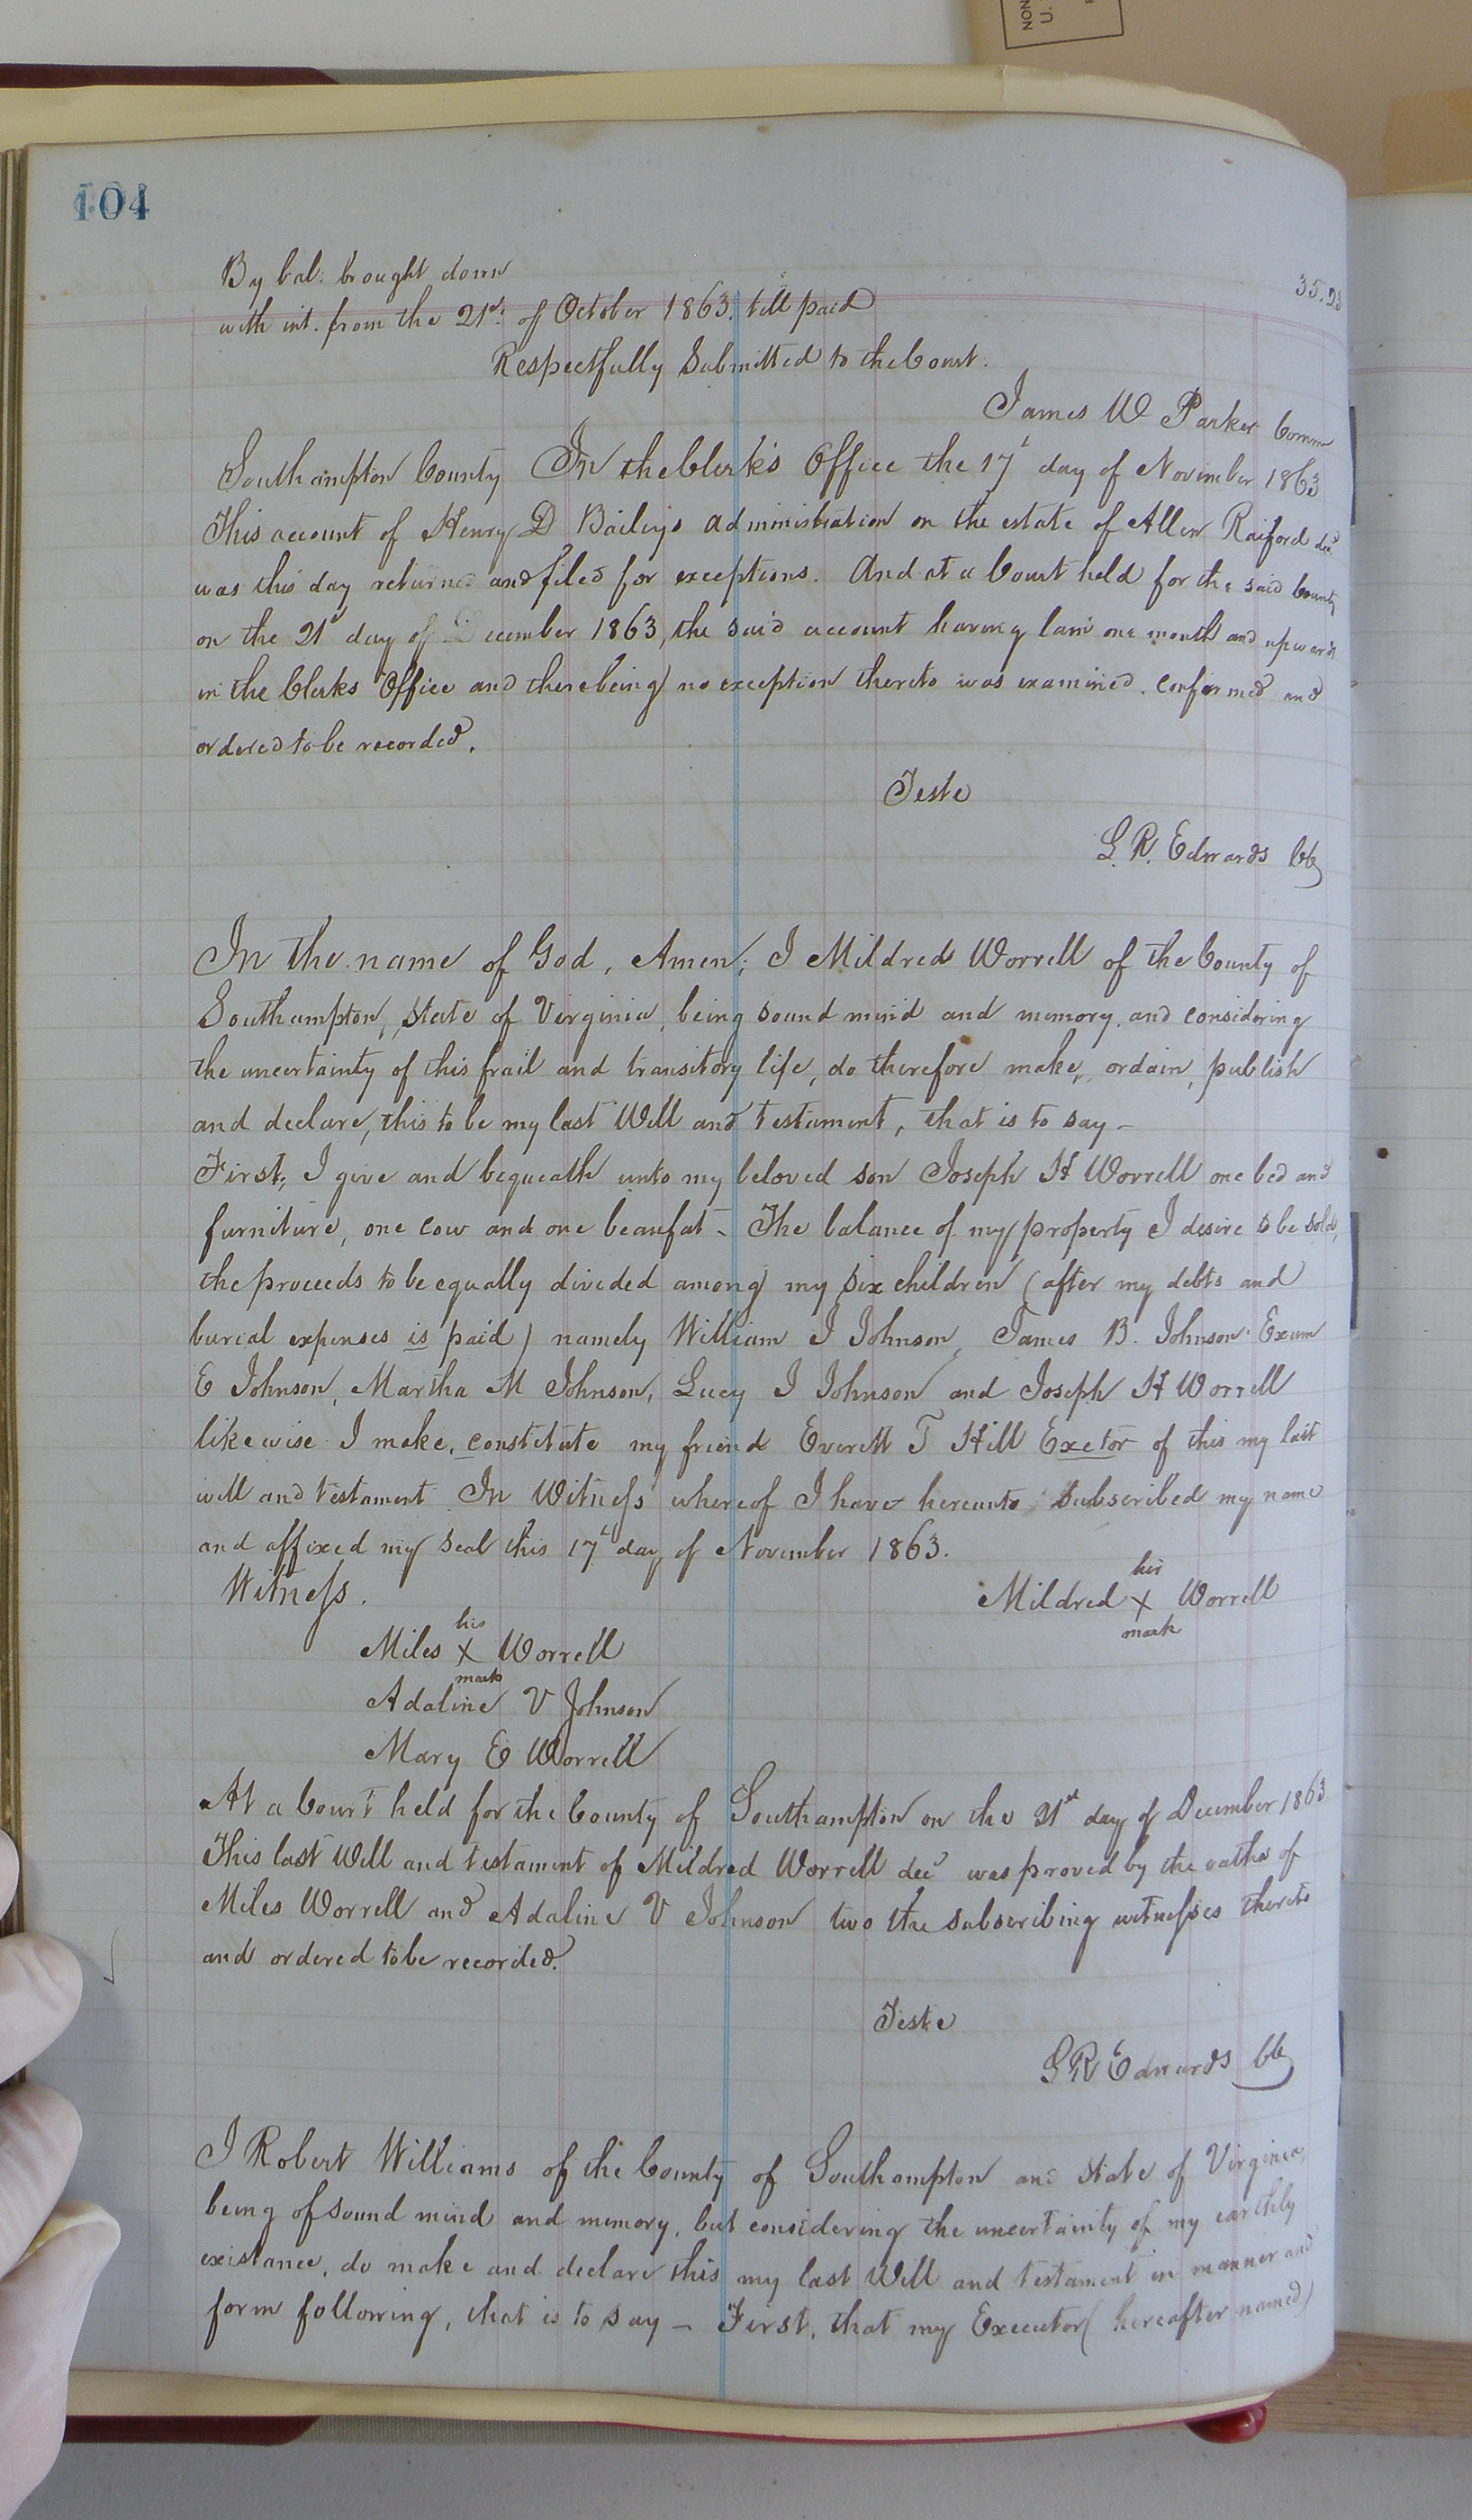 NON
U.
104
By bal. brought down 35.23
with int. from the 21st. of October 1863. till paid
Respectfully Submitted to the Court.
James W Parker Comm
Southampton County In the Clerk's Office the 17t day of November 1863
This account of Henry D Baileys administration on the estate of Allen Raiford decd.
was this day returned and filed for exceptions. And at a Court held for the said County
on the 21st day of December 1863, the said account having lain one month and upwards
in the Clerks Office and there being no exception thereto was examined. confirmed and
ordered to be recorded.
Teste
L. R. Edwards CC
In the name of God, Amen; I Mildred Worrell of the County of
Southampton, State of Virginia, being sound mind and memory, and considering
the uncertainty of this frail and transitory life, do therefore make, ordain, publish
and declare, this to be my last Will and testament, that is to say -
First; I give and bequeath unto my beloved son Joseph H Worrell one bed and
furniture, one cow and one beaufat - The balance of my property I desire to be sold,
the proceeds to be equally divided among my six children (after my debts and
burial expenses is paid) namely William J Johnson, James B. Johnson Exum
E Johnson, Martha M Johnson, Lucy J Johnson and Joseph H Worrell
likewise I make, constitute my friend Everett T Hill Exector of this my last
will and testament In Witness whereof I have hereunto Subscribed my name
and affixed my seal this 17t day of November 1863.
Witness. Mildred her X mark Worrell
Miles his X mark Worrell
Adaline V Johnson
Mary E Worrell
At a Court held for the County of Southampton on the 21st day of December 1863
This last Will and testament of Mildred Worrell decd was proved by the oaths of
Miles Worrell and Adaline V Johnson two the subscribing witnesses thereto
and ordered to be recorded.
Teste
L R Edwards CC
I Robert Williams of the County of Southampton and State of Virginia,
being of sound mind and memory, but considering the uncertainty of my earthly
existance, do make and declare this my last Will and testament in manner and
form following, that is to say - First, that my Executor (hereafter named)